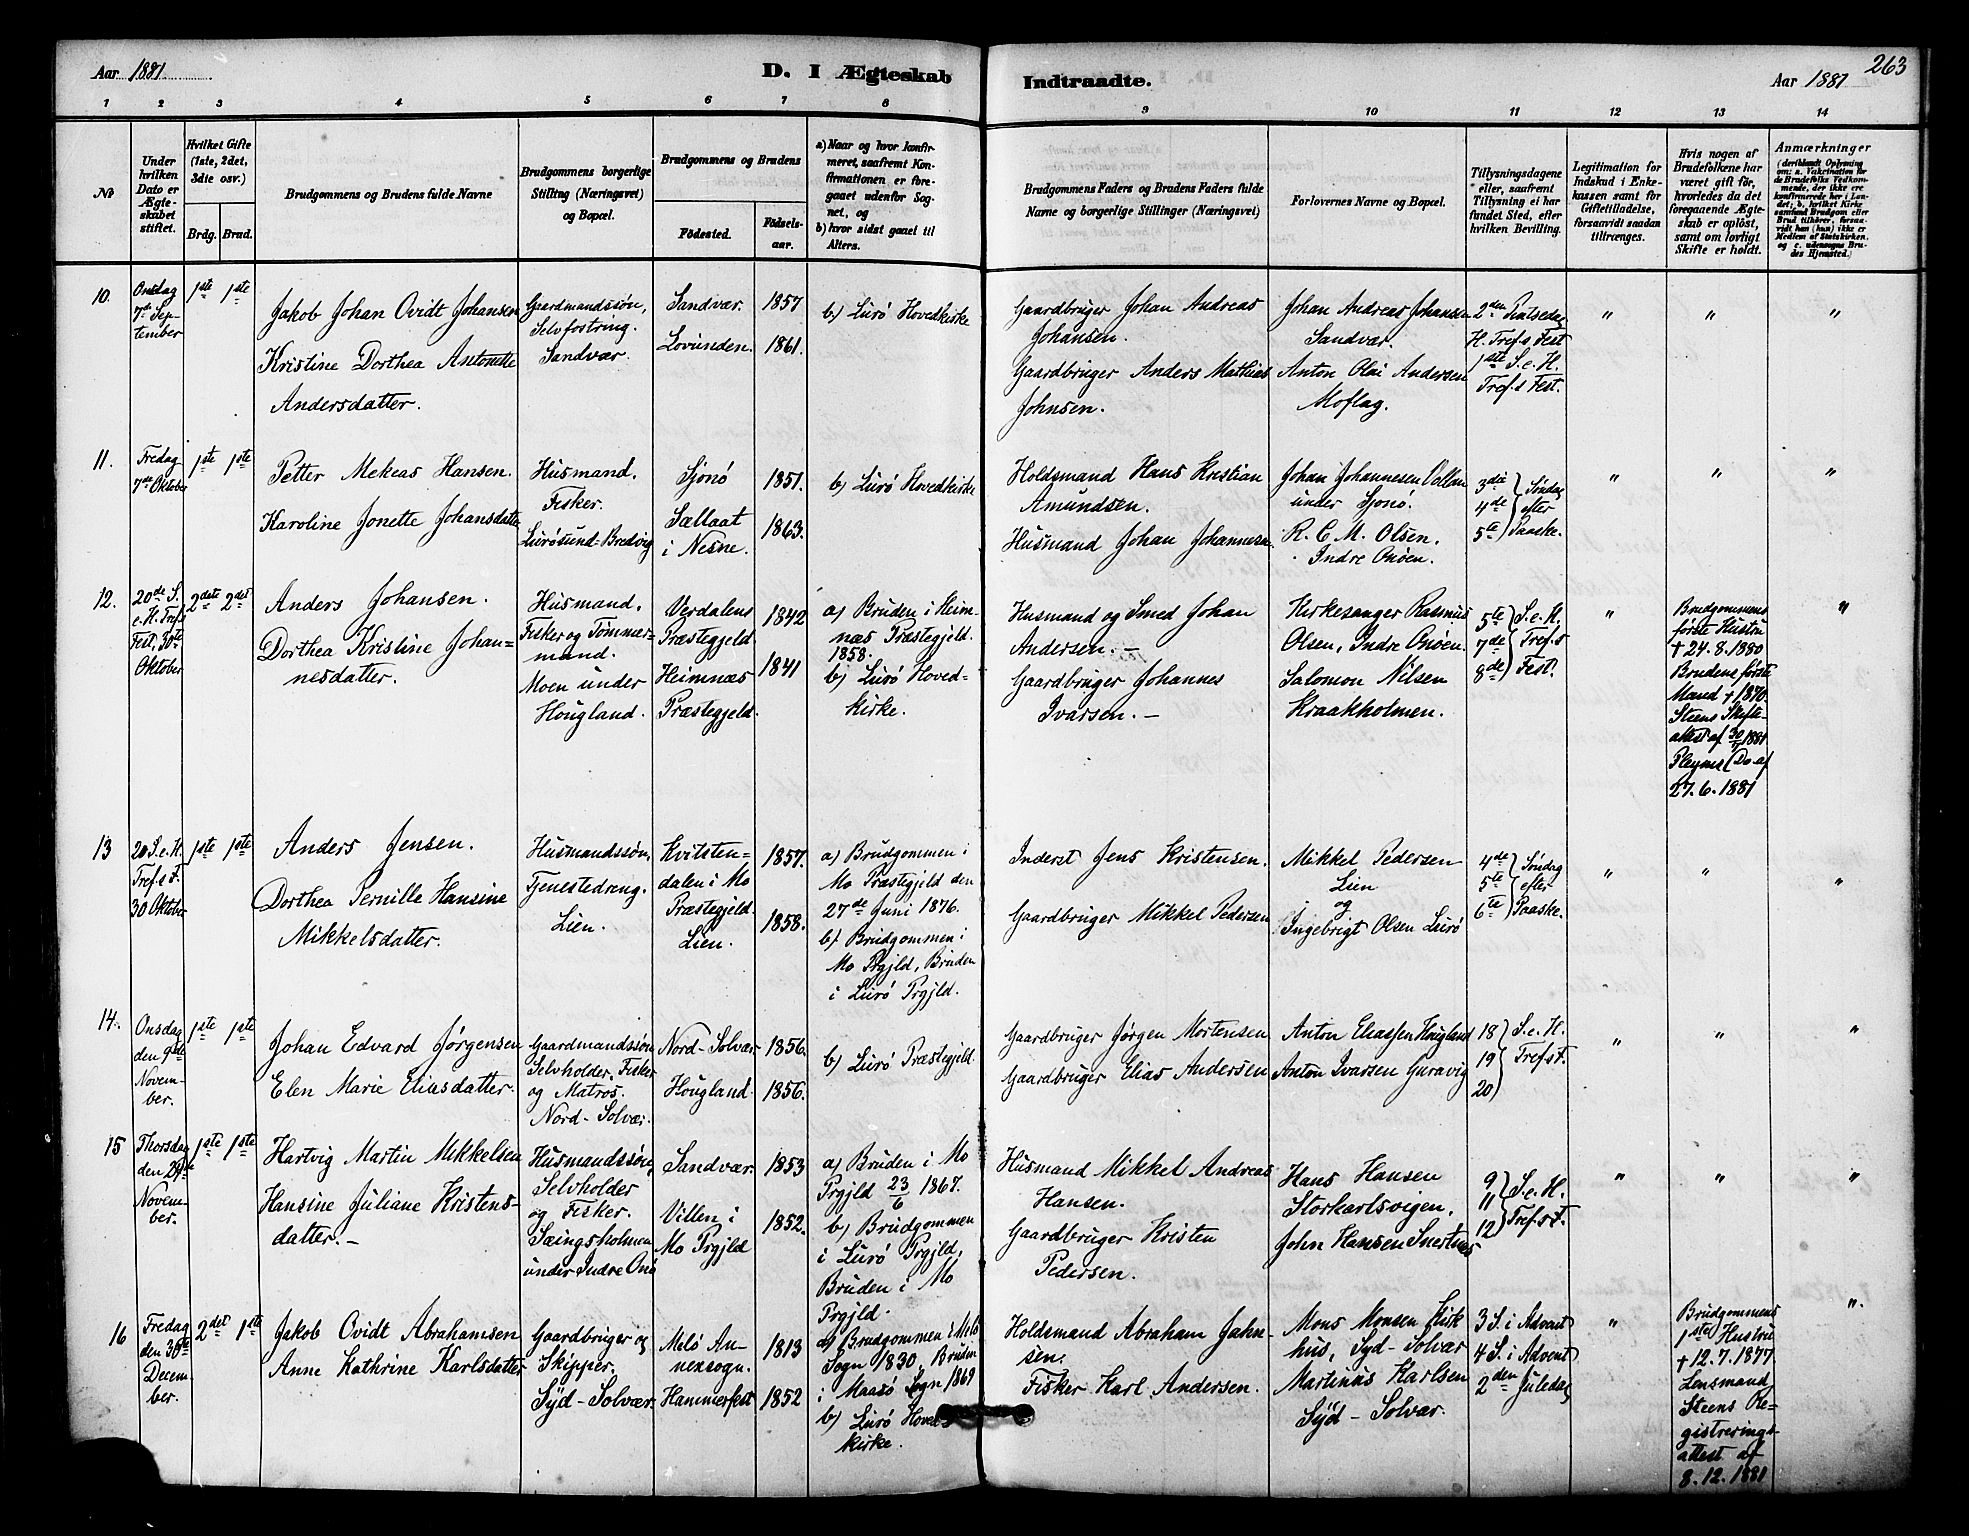 Aar 1881
D. I Ægteskab
Indtraadte.
Aar 1881
263
1
2
3
4
5
6
7
8
9
10
11
12
13
14
No
Under
hvilken
Dato er
Ægte-
skabet
stiftet.
Hvilket Gifte
(1ste, 2det,
3die osv.)
Brdg. Brud.
Brudgommens og Brudens fulde Navne
Brudgommens borgerlige
Stilling (Næringsvei)
og Bopæl.
Brudgommens og Brudens
Fødested.
Fødsels-
aar.
a) Naar og hvor konfir-
meret, saafremt Kon-
firmationen er fore-
gaaet udenfor Sog-
net, og
b) hvor sidst gaaet til
Alters.
Brudgommens Faders og Brudens Faders fulde
Navne og borgerlige Stillinger (Næringsvei)
Forlovernes Navne og Bopæl.
Tillysningsdagene
eller, saafremt
Tillysning ei har
fundet Sted, efter
hvilken Bevilling.
Legitimation for
Indskud i Enke-
kassen samt for
Giftetilladelse,
forsaavidt saadan
tiltrænges.
Hvis nogen af
Brudefolkene har
været gift før,
hvorledes da det
foregaaende Ægte-
skab er opløst,
samt om lovligt
Skifte er holdt.
Anmærkninger
(deriblandt Oplysning
om: a. Vakcination for
de Brudefolks Vedkom-
mende, der ikke ere
konfirmerede her i Lan-
det; b. hvilket Kirke-
samfund Brudgom eller
Brud tilhører, forsaa-
vidt han (hun) ikke er
Medlem af Statskirken,
og c. udensogns Bru-
des Hjemsted.)
10.
Onsdag
7de Sep-
tember
1ste 1ste
Jakob Johan Ovidt Johansen
Kristine Dorthea Antonette
Andersdatter.
Gaardmandssøn,
Selvfostring.
Sandvær.
Sandvær. 1857
Lovunden. 1861.
b) Lurø Hovedkirke
Gaardbruger Johan Andreas
Johansen.
Gaardbruger Anders Mathias
Johnsen.
Johan Andreas Johansen
Sandvær.
Anton Olai Andersen
Moflag.
2den Pintsedag
H. Tref.s Fest
1ste S. e. H.
Tref.s Fest.
" " "
11.
Fredag
7de Oktober
1ste 1ste
Petter Mekeas Hansen.
Karoline Jonette Johansdatter
Husmand.
Fisker.
Lurøsund-Bredvig
Sjonø 1851.
Sællaat
i Nesne. 1863.
b) Lurø Hovedkirke
Holdsmand Hans Kristian
Amundsen.
Husmand Johan Johannesen
Johan Johannesen Vollan
under Sjonø.
R. C. M. Olsen.
Indre Onøen.
3die
4de
5te
Søndag
efter
Paaske.
" " "
12.
20de S.
e. H. Tref.s
Fest, 30te
Oktober
2det 2det
Anders Johansen.
Dorthea Kristine Johan-
nesdatter.
Husmand.
Fisker og Tømmer-
mand.
Moen under
Hougland.
Verdalens
Præstegjeld
1842
Heimnæs
Præstegjeld.
1841
a) Bruden i Heim-
næs Præstegjeld.
1858.
b) Lurø Hoved-
kirke.
Husmand og Smed Johan
Andersen. -
Gaardbruger Johannes
Ivarsen. -
Kirkesanger Rasmus
Olsen, Indre Onøen.
Salomon Nilsen
Kraakholmen.
5te
7de
8de
S. e. H.
Tref.s
Fest.
"
Brudgommens
første Hustru
+ 24.8.1880
Brudens første
Mand + 1870.
Steens Skifte-
attest af 30/9 1881
Pleyms Do af
27.6.1881
"
13
20 S. e. H.
Tref.s F.
30 Oktober
1ste 1ste
Anders Jensen.
Dorthea Pernille Hansine
Mikkelsdatter.
Husmandssøn,
Tjenestedreng.
Lien.
Kvitsten-
dalen i Mo
Præstegjeld.
1857.
Lien. 1858.
a) Brudgommen i
Mo Præstegjeld den
27de Juni 1876.
b) Brudgommen i
Mo Prgjld, Bruden
i Lurø Prgjld.
Inderst Jens Kristensen.
Gaardbruger Mikkel Pedersen
Mikkel Pedersen
Lien
og
Ingebrigt Olsen Lurø
4de
5te
6te
Søndag
efter
Paaske.
" " "
14.
Onsdag
den 9de
Novem-
ber.
1ste 1ste
Johan Edvard Jørgensen
Elen Marie Eliasdatter.
Gaardmandssøn
Selvholder, Fisker
og Matros.
Nord-Solvær.
Nord-Solvær 1856.
Hougland. 1856.
b) Lurø Præstegjeld.
Gaardbruger Jørgen Mortensen
Gaardbruger Elias Andersen
Anton Eliassen Hougland
Anton Ivarsen Guravig
18
19
20
S. e. H.
Tref.s F.
" " "
15
Thorsdag
den 24de
Novem-
ber.
1ste 1ste
Hartvig Martin Mikkelsen
Hansine Juliane Kristens-
datter. -
Husmandssøn,
Selvholder
og Fisker.
Sæingsholmen
under Indre Onø
Sandvær. 1853
Villen i
Mo Prgjld
1852.
a) Bruden i Mo
Prgjld 23/6 1867.
b) Brudgommen
i Lurø Prgjld,
Bruden i Mo
Prgjld.
Husmand Mikkel Andreas
Hansen.
Gaardbruger Kristen
Pedersen.
Hans Hansen
Storkarlsvigen.
John Hansen Snertnes
9
11
12
S. e. H.
Tref.s F.
" " "
16
Fredag
den 30te
Decem-
ber.
2det 1ste
Jakob Ovidt Abrahamsen
Anne Kathrine Karlsdatter
Gaardbruger og
Skipper,
Syd-Solvær.
Melø An-
nexsogn.
1813
Hammerfest 1852
a) Brudgommen i Melø
Sogn 1830, Bruden
i Maasø Sogn 1869
b) Lurø Hoved-
kirke.
Holdsmand Abraham Jahn-
sen.
Fisker Karl Andersen.
Mons Monsen Kirk-
hus, Syd-Solvær
Martinus Karlsen
Syd-Solvær.
3 S. i Advent
4 S. i Advent
2den Juledag
"
Brudgommens
1ste Hustru
+ 12.7.1877.
Lensmand
Steens Re-
gistrerings-
attest af
8.12.1881
"